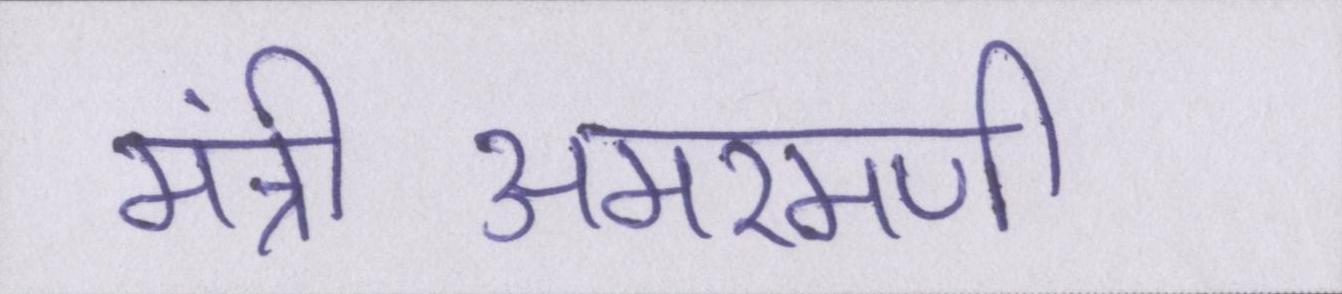 मंत्री अमरमणी